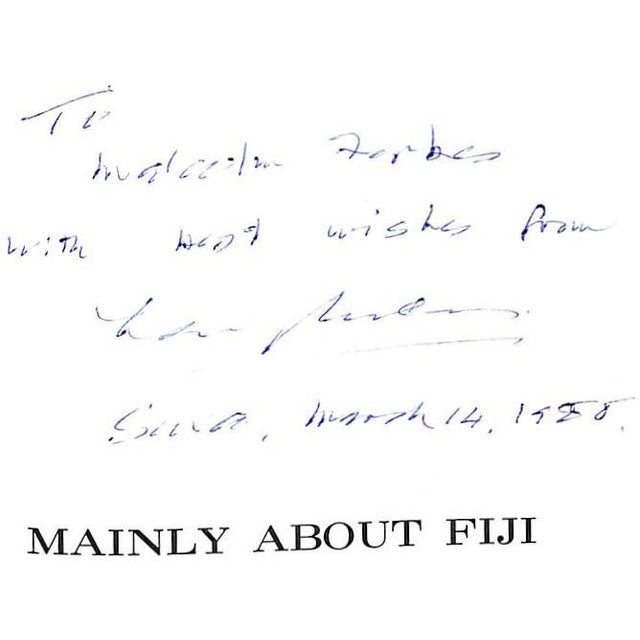 To
Malcolm Forbes
with best wishes from
Suva, March 14, 1988.
MAINLY ABOUT FIJI